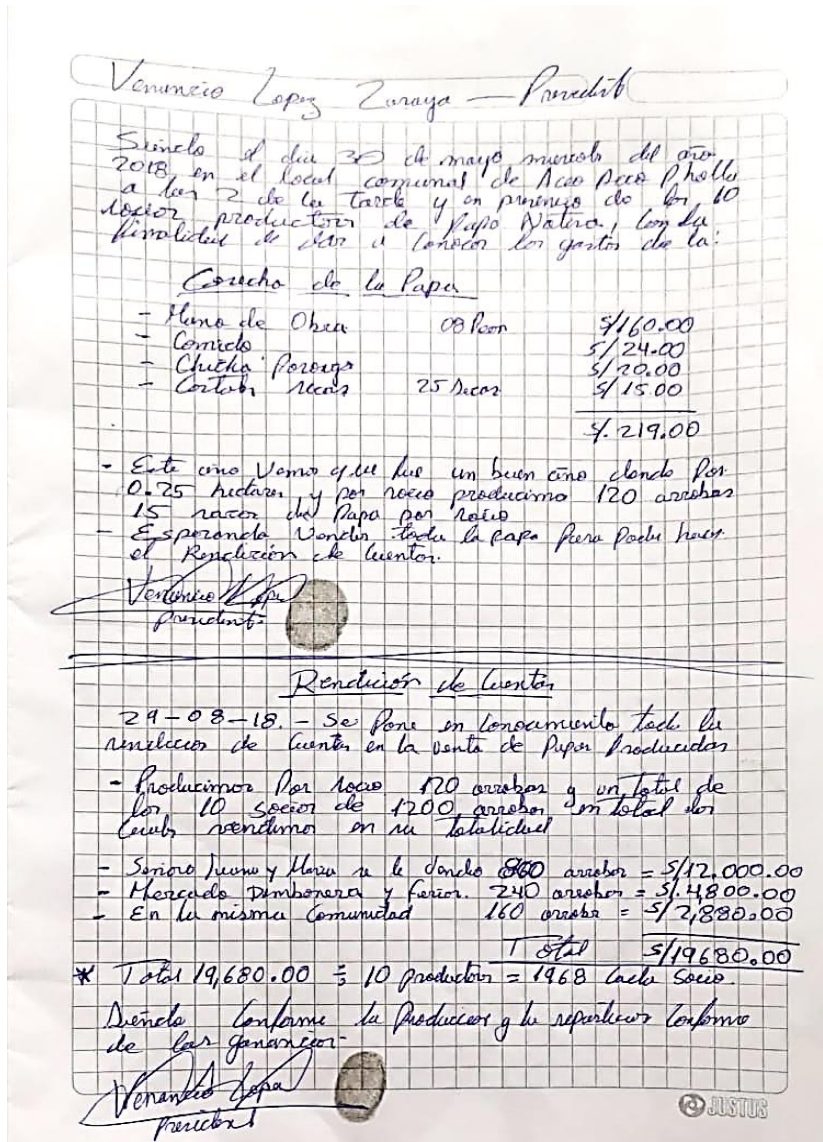 Venancio Lopez Zuraya — Presidente
Siendo el dia 30 de mayo miercols del año
2018 en el local comunal de Acco Acco Phalla
a las 2 de la tarde y en presencia de los 10
socios productores de Papa Nativa, con la
finalidad de dar a conocer los gastos de la:
Cosecha de la Papa
- Mano de Obra 08 Peon S/160.00
- Comida S/24.00
- Chicha Porongo S/20.00
- Costales secas 25 Secas S/15.00
S/. 219.00
- Este año Vemos que fue un buen año donde Por
0.25 hectarea y por socio producimo 120 arrobas
15 sacos de Papa por socio
- Esperando Vender toda la papa Para Poder hacer
el Rendición de Cuentas.
Venancio Lopa
president
Rendición de Cuentas
29-08-18. - Se Pone en Conocimiento toda la
rendicion de Cuentas en la venta de Papas Producidas
- Producimos Por socio 120 arrobas y un total de
los 10 socios de 1200 arrobas en total los
vendimos en su totalidad
- Señora Juana y Maria se le dando 800 arrobas = S/12,000.00
- Mercado y ferias. 240 arrobas = S/. 4,800.00
- En la misma Comunidad 160 arroba = S/ 2,880.00
Total S/19680.00
* Total 19,680.00 ÷ 10 productores = 1968 Cada Socio.
Siendo Conforme la Produccion y la reparticion Conforme
de las ganancias.
Venancio Lopa
president
JUSTUS